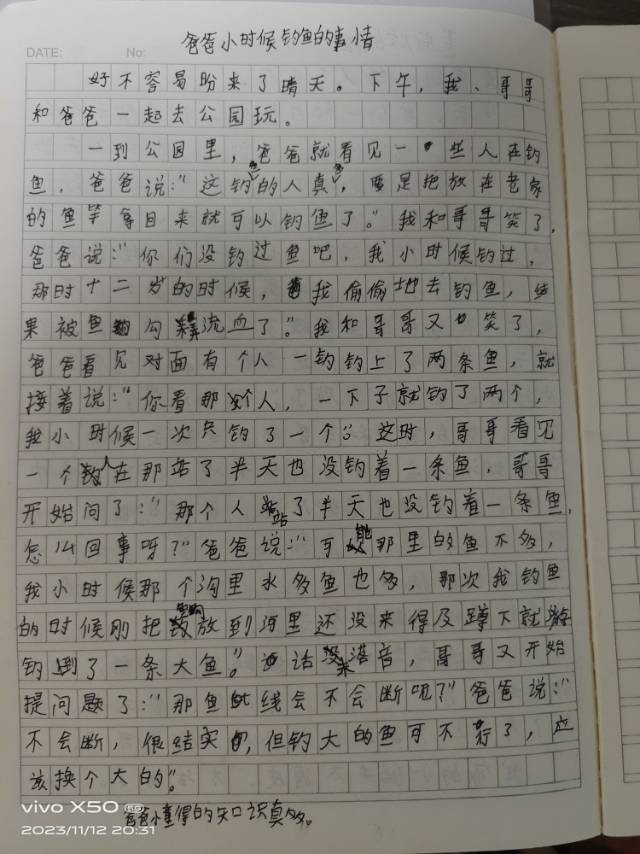 爸爸小时候钓鱼的事情
DATE: No:
好不容易盼来了晴天。下午,我、哥哥
和爸爸一起去公园玩。
一到公园里,爸爸就看见一些人在钓
鱼,爸爸说:“这钓的人真多,要是把放在老家
的鱼竿拿回来就可以钓鱼了。”我和哥哥笑了,
爸爸说:“你们没钓过鱼吧,我小时候钓过,
那时十二岁的时候,我偷偷地去钓鱼,结
果被鱼勾流血了。”我和哥哥又笑了,
爸爸看见对面有个人一钓钓上了两条鱼,就
接着说:“你看那个人,一下子就钓了两个,
我小时候一次只钓了一个”。这时,哥哥看见
一个人在那站了半天也没钓着一条鱼,哥哥
开始问了:“那个人站了半天也没钓着一条鱼,
怎么回事呀?”爸爸说:“可能那里的鱼不多,
我小时候那个沟里水多鱼也多,那次我钓鱼
的时候刚把放到河里还没来得及蹲下就
钓到了一条大鱼”。话没落音,哥哥又开始
提问题了:“那鱼线会不会断呢?”爸爸说:“
不会断,很结实,但钓大的鱼可不行了,应
该换个大的”。
爸爸懂得的知识真多。
vivo X50
2023/11/12 20:31